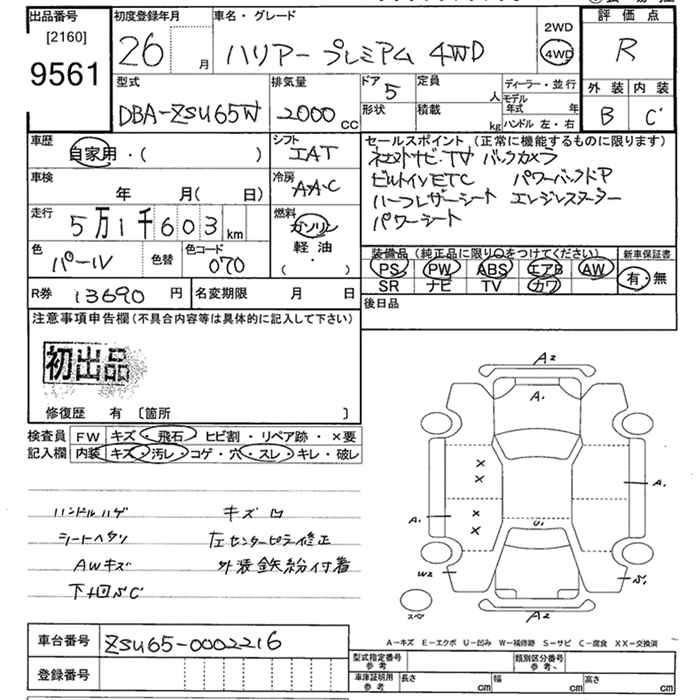 出品番号
[2160]
9561
初度登録年月
26 月
車名・グレード
ハリアー プレミアム 4WD
2WD
4WD
評価点
R
外装 内装
B C
型式
DBA-ZSU65W
排気量
2000 cc
ドア 5
形状
定員 人
積載 kg
ディーラー・並行
モデル年式 年
ハンドル 左・右
車歴
自家用・( )
シフト
IAT
車検
年 月( 日)
冷房
AAC
走行
5万1千603 km
燃料
ガソリン
軽油
( ・ )
色
パール
色替
色コード
070
セールスポイント(正常に機能するものに限ります)
ビルトインETC パワーバックドア
ハーフレザーシート
パワーシート
装備品(純正品に限り○をつけてください)
PS PW ABS エアB AW
SR ナビ TV カワ
新車保証書
有・無
R券 13690 円
名変期限 月 日
後日品
注意事項申告欄(不具合内容等は具体的に記入して下さい)
初出品
修復歴 有 〔箇所 〕
検査員記入欄
FW キズ・飛石・ヒビ割・リペア跡・×要
内装 キズ・汚レ・コゲ・穴・スレ・キレ・破レ
ハンドルハゲ キズ凹
シートヘタリ 左センターピラ修正
AWキズ 外装鉄粉付着
下回S.C
A2
A1
A1
A1
U1
W2
S1
スペア
A2
A−キズ E−エクボ U−凹み W−補修跡 S−サビ C−腐食 XX−交換済
車台番号 ZSU65-0002216
登録番号
型式指定番号 参考
類別区分番号 参考
車庫証明用 参考
長さ cm
幅 cm
高さ cm